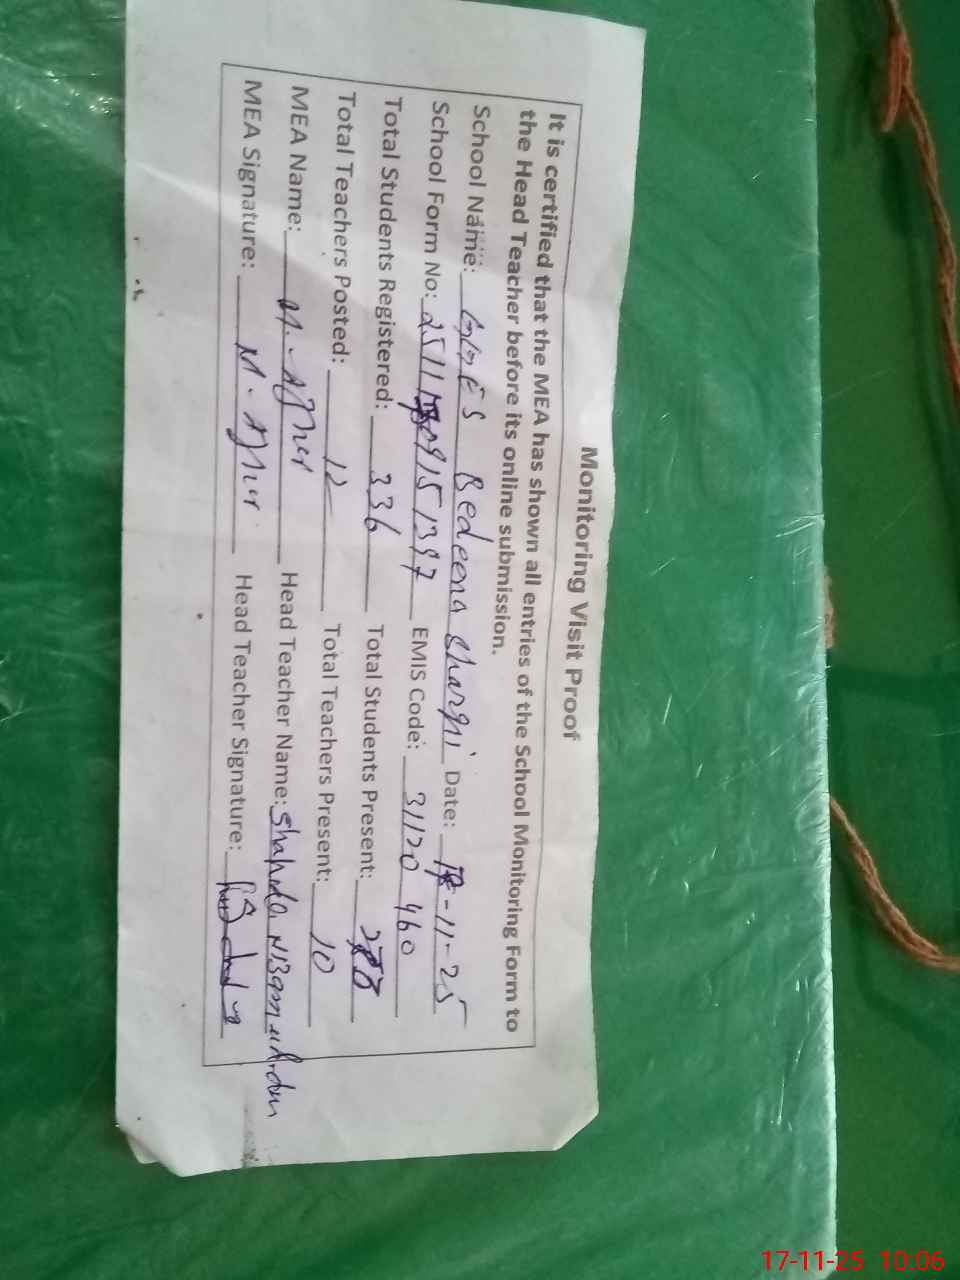 Monitoring Visit Proof
It is certified that the MEA has shown all entries of the School Monitoring Form to
the Head Teacher before its online submission.
School Name: GGES Bedeena sharqi Date: 17-11-25
School Form No: EMIS Code: 31120460
Total Students Registered: 336 Total Students Present:
Total Teachers Posted: 12 Total Teachers Present: 10
MEA Name: M. Head Teacher Name: Shahda
MEA Signature: M. Head Teacher Signature:
17-11-25 10:06